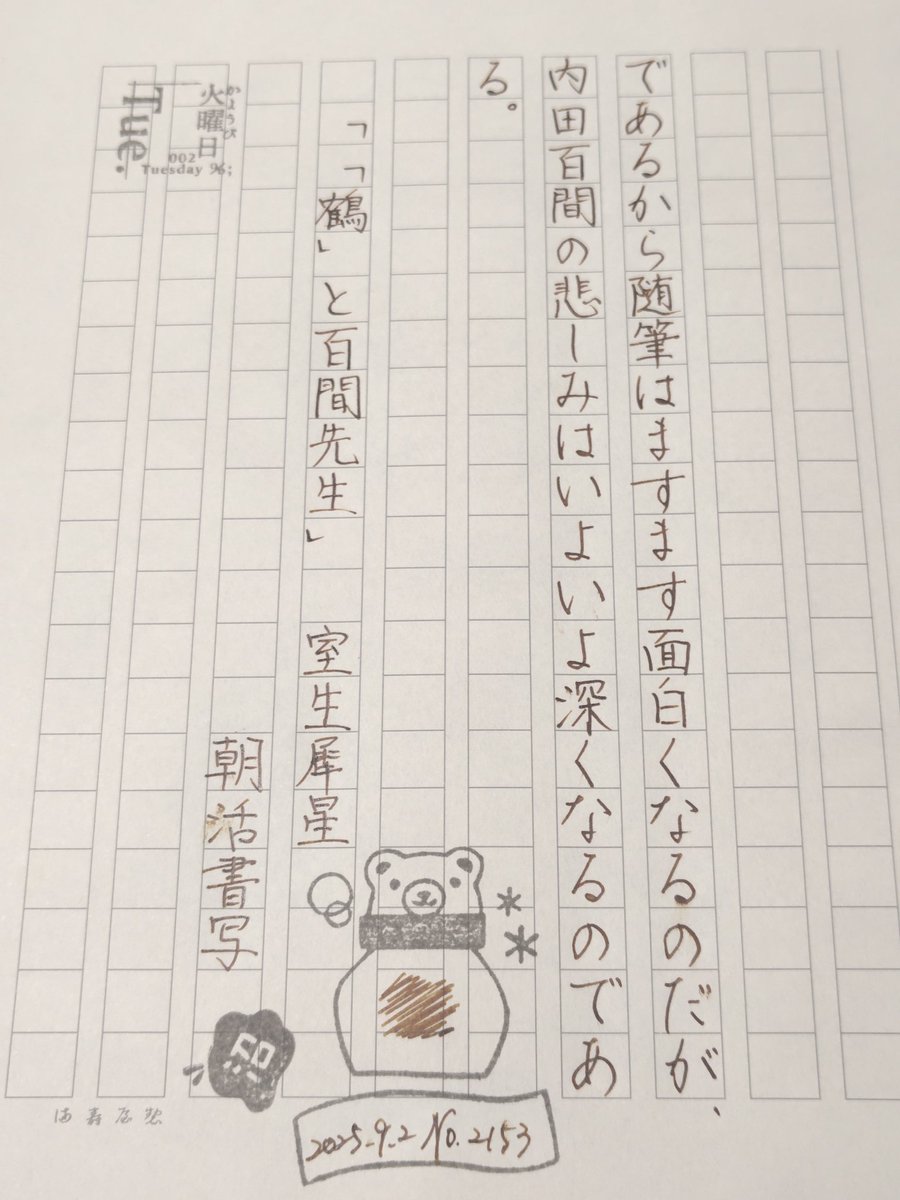 であるから随筆はますます面白くなるのだが、
内田百間の悲しみはいよいよ深くなるのであ
る。
「「鶴」と百間先生」　室生犀星
朝活書写
火曜日
かようび
Tue.
002
Tuesday 96;
沼
2025.9.2 No.2153